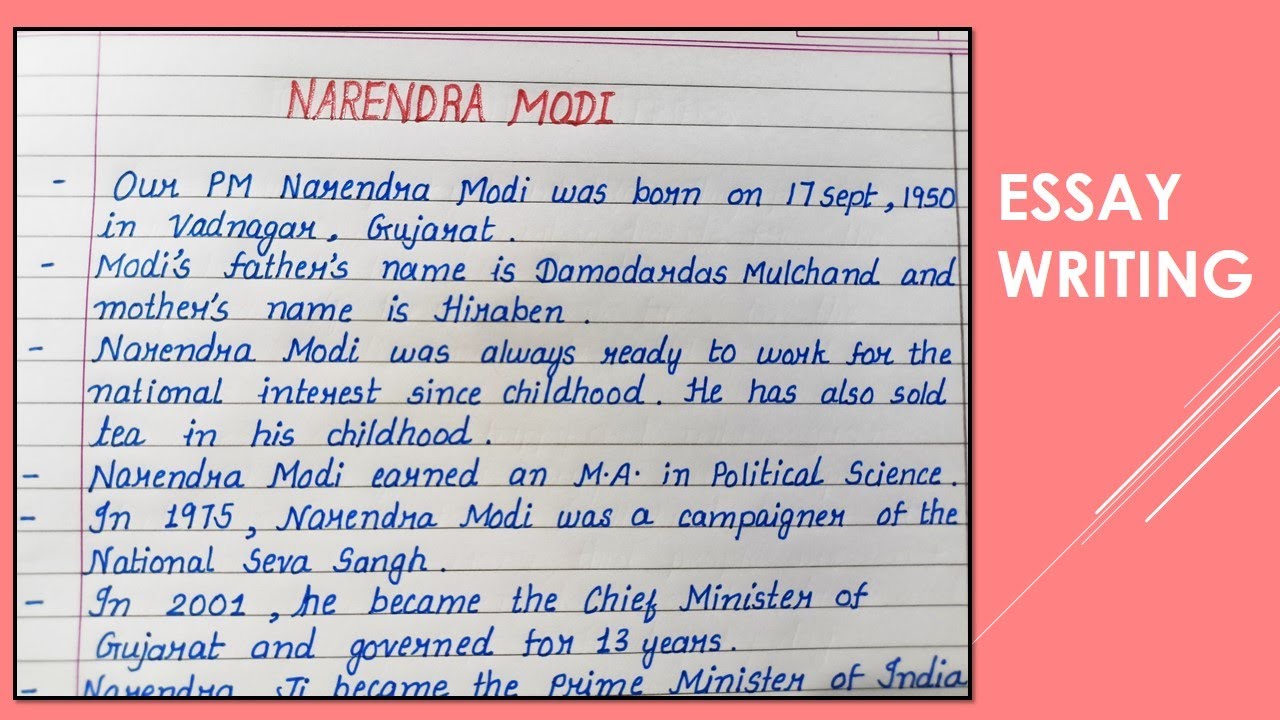 NARENDRA MODI
- Our PM Narendra Modi was born on 17 Sept, 1950
in Vadnagar, Gujarat.
- Modi's father's name is Damodardas Mulchand and
mother's name is Hiraben.
- Narendra Modi was always ready to work for the
national interest since childhood. He has also sold
tea in his childhood.
- Narendra Modi earned an M.A. in Political Science.
- In 1975, Narendra Modi was a campaigner of the
National Seva Sangh.
- In 2001, he became the Chief Minister of
Gujarat and governed for 13 years.
- Narendra Ji became the Prime Minister of India
ESSAY
WRITING